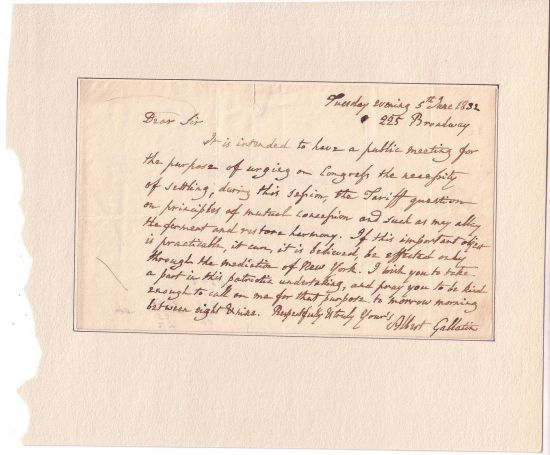 Tuesday evening 5th June 1832
225 Broadway
Dear Sir
It is intended to have a public meeting for
the purpose of urging on Congress the necessity
of settling, during this session, the Tariff question
on principles of mutual concession and such as may allay
the ferment and restore harmony. If this important object
is practicable, it can, it is believed, be effected only
through the mediation of New York. I wish you to take
a part in this patriotic undertaking, and pray you to be kind
enough to call on me for that purpose to morrow morning
between eight & nine. Respectfully & truly Your's
Albert Gallatin